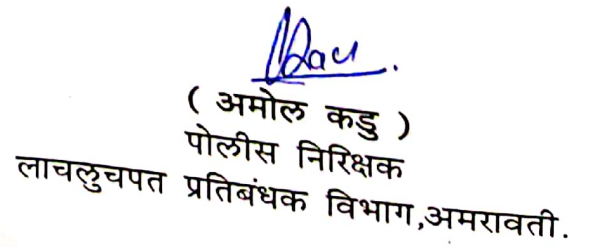 ( अमोल कडु )
पोलीस निरिक्षक
लाचलुचपत प्रतिबंधक विभाग,अमरावती.